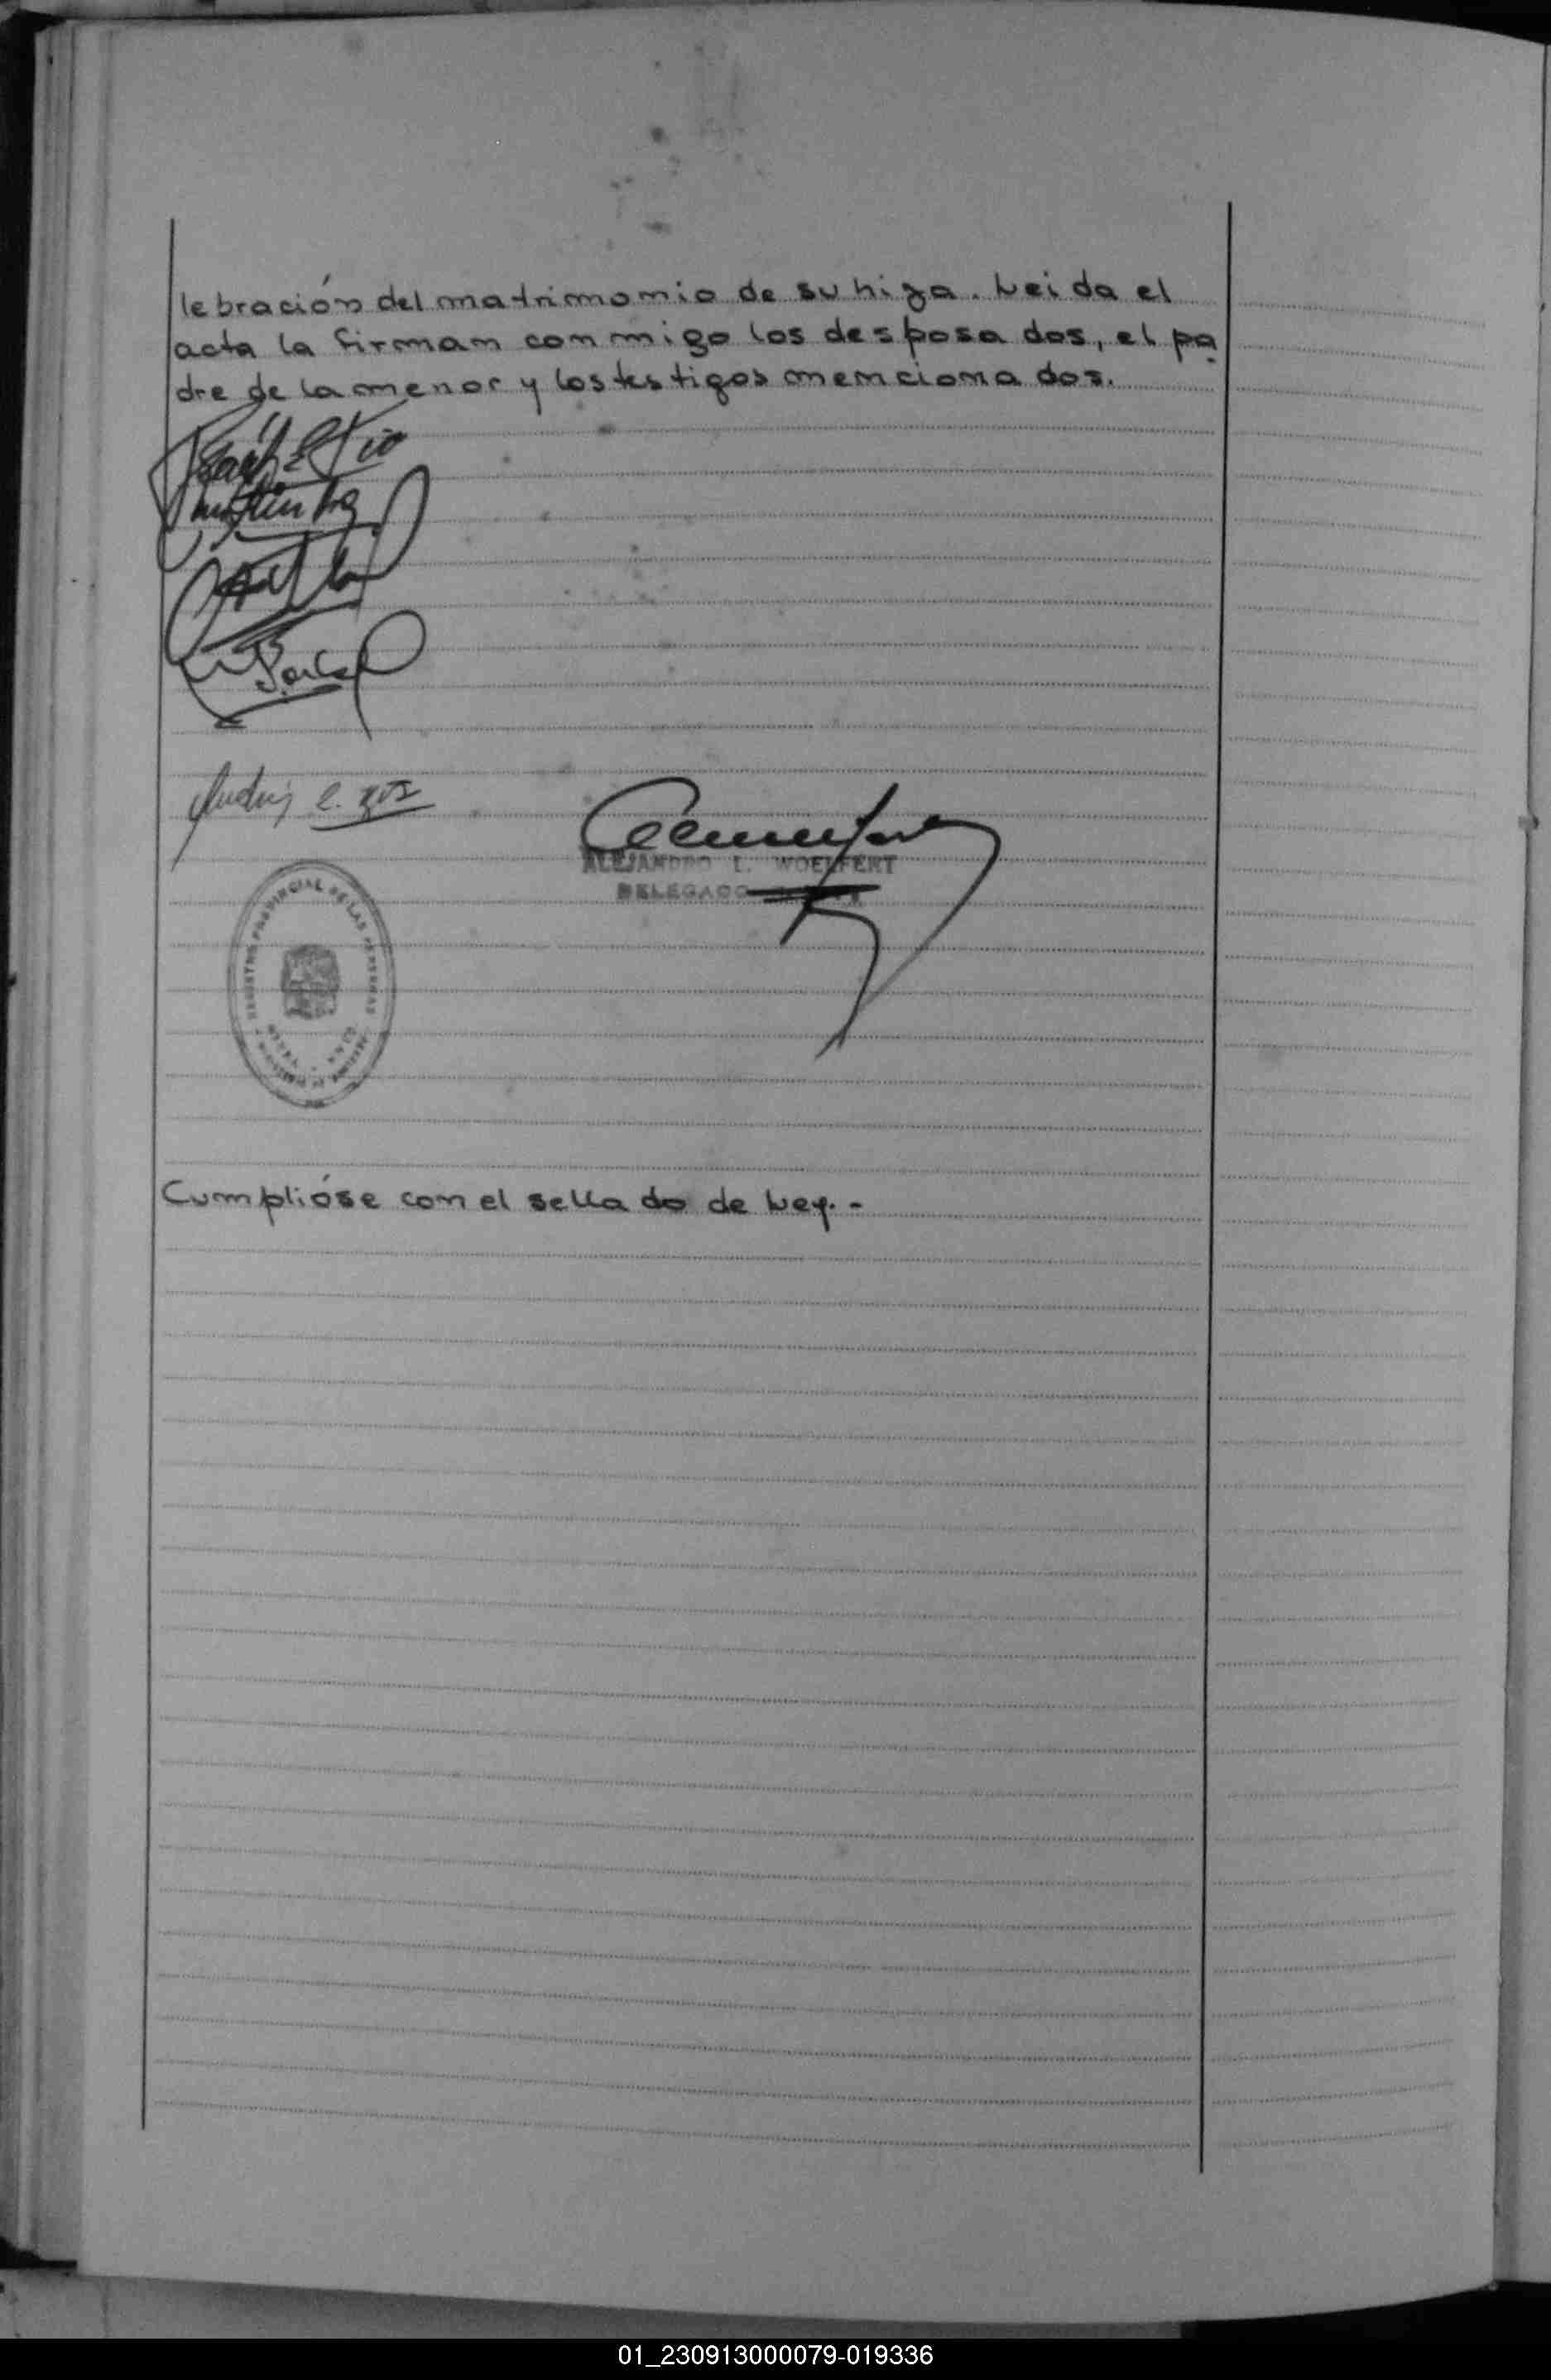 lebración del matrimonio de su hija. Leida el
acta la firman conmigo los desposados, el pa
dre de la menor y los testigos mencionados.
ALEJANDRO L. WOELFERT
DELEGADO
REGISTRO PROVINCIAL DE LAS PERSONAS
Cumplióse con el sellado de Ley.-
01_230913000079-019336